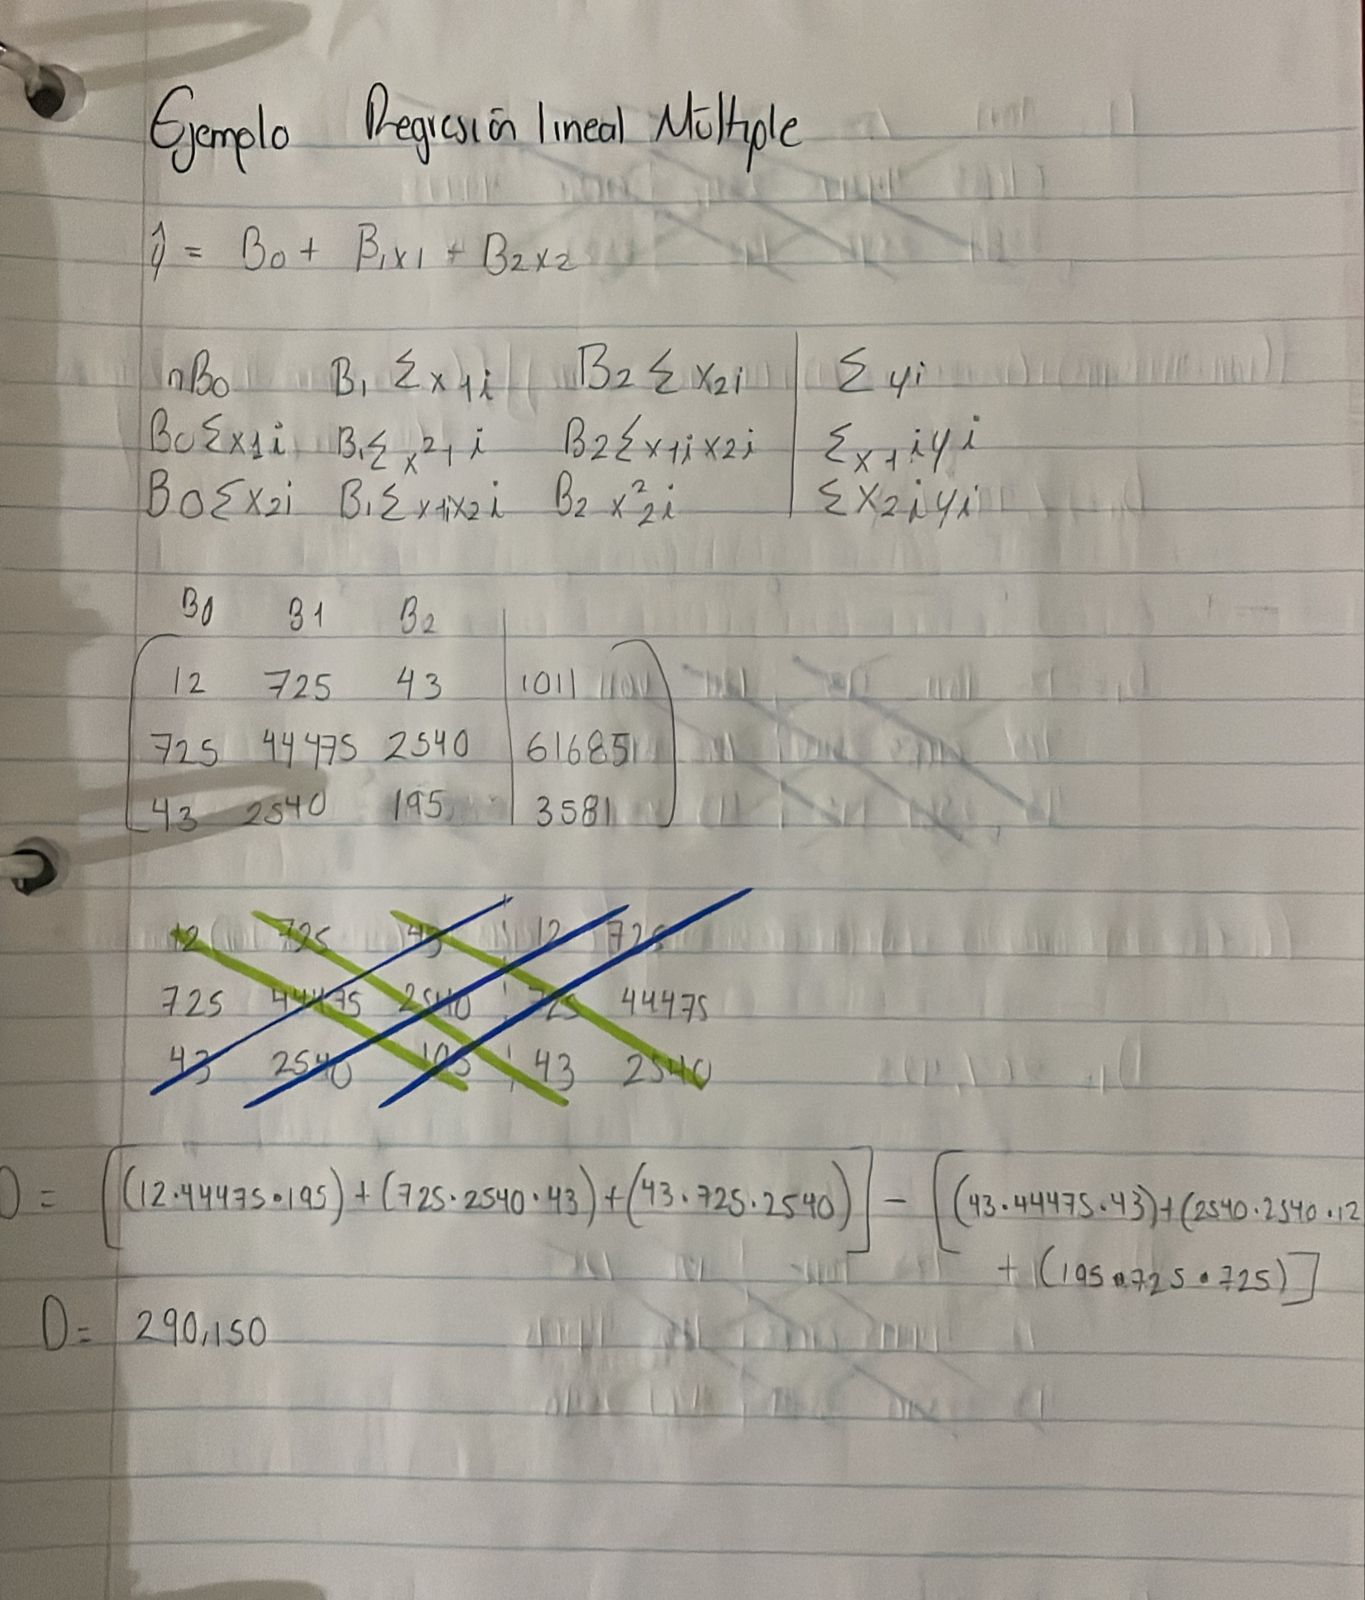 Ejemplo Regresión lineal Múltiple
ŷ = B0 + B1x1 + B2x2
nB0 B1 Σx1i B2 Σx2i | Σyi
B0Σx1i B1Σx²1i B2Σx1ix2i | Σx1iyi
B0Σx2i B1Σx1ix2i B2 x²2i | Σx2iyi
B0 B1 B2
12 725 43 | 1011
725 44475 2540 | 61685
43 2540 195 | 3581
12 725 43 12 725
725 44475 2540 725 44475
43 2540 195 43 2540
D = [(12·44475·195)+(725·2540·43)+(43·725·2540)] - [(43·44475·43)+(2540·2540·12
+ (195·725·725)]
D = 290,150